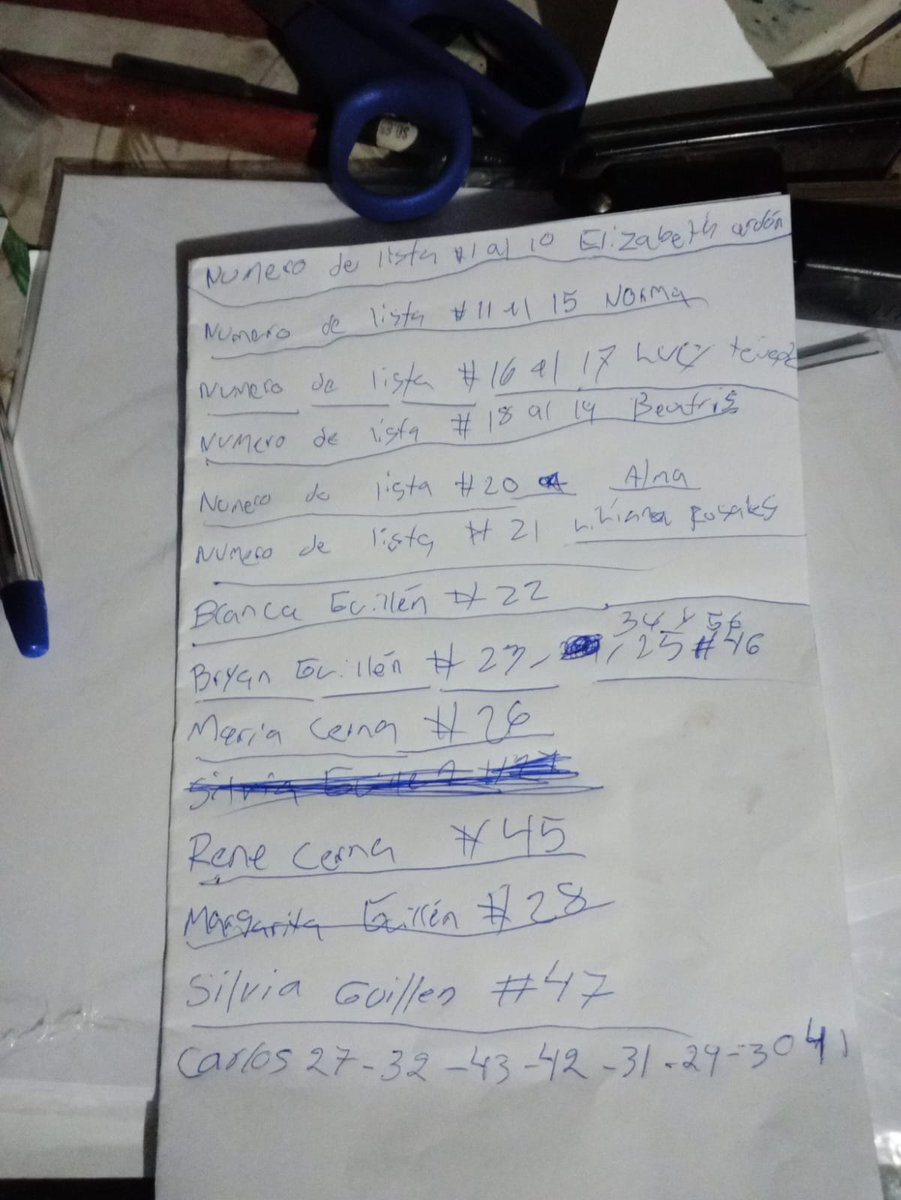 Numero de lista #1 al 10 Elizabeth ardón
Numero de lista #11 al 15 Norma
Numero de lista #16 al 17 Lucy
Numero de lista #18 al 19 Beatris
Numero de lista #20 Alma
Numero de lista #21 Liliana Rosales
Blanca Guillén #22
34 y 56
Bryan Guillén #23, , 25 #46
Maria Cerna #26
Silvia Guillen #27
Rene Cerna #45
Margarita Guillén #28
Silvia Guillen #47
Carlos 27-32-43-42-31-29-30 41